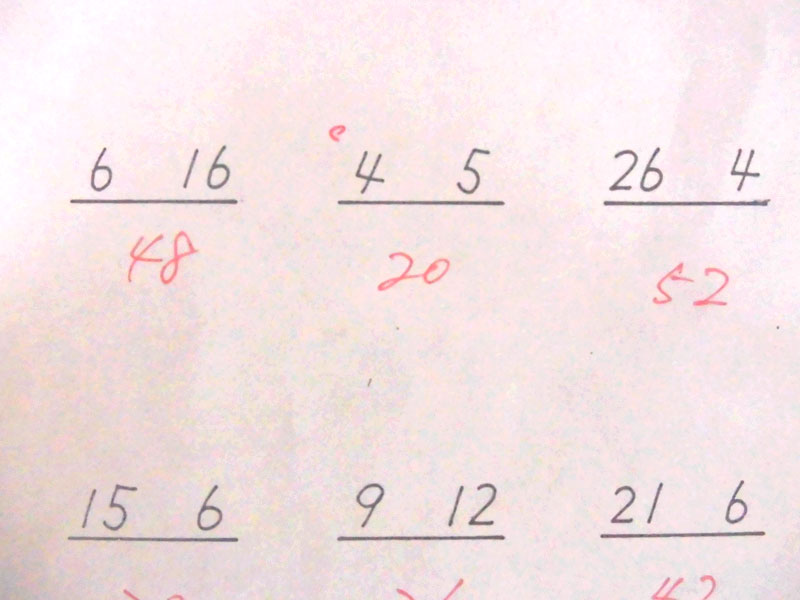 6 16 4 5 26 4
48 20 52
15 6 9 12 21 6
42